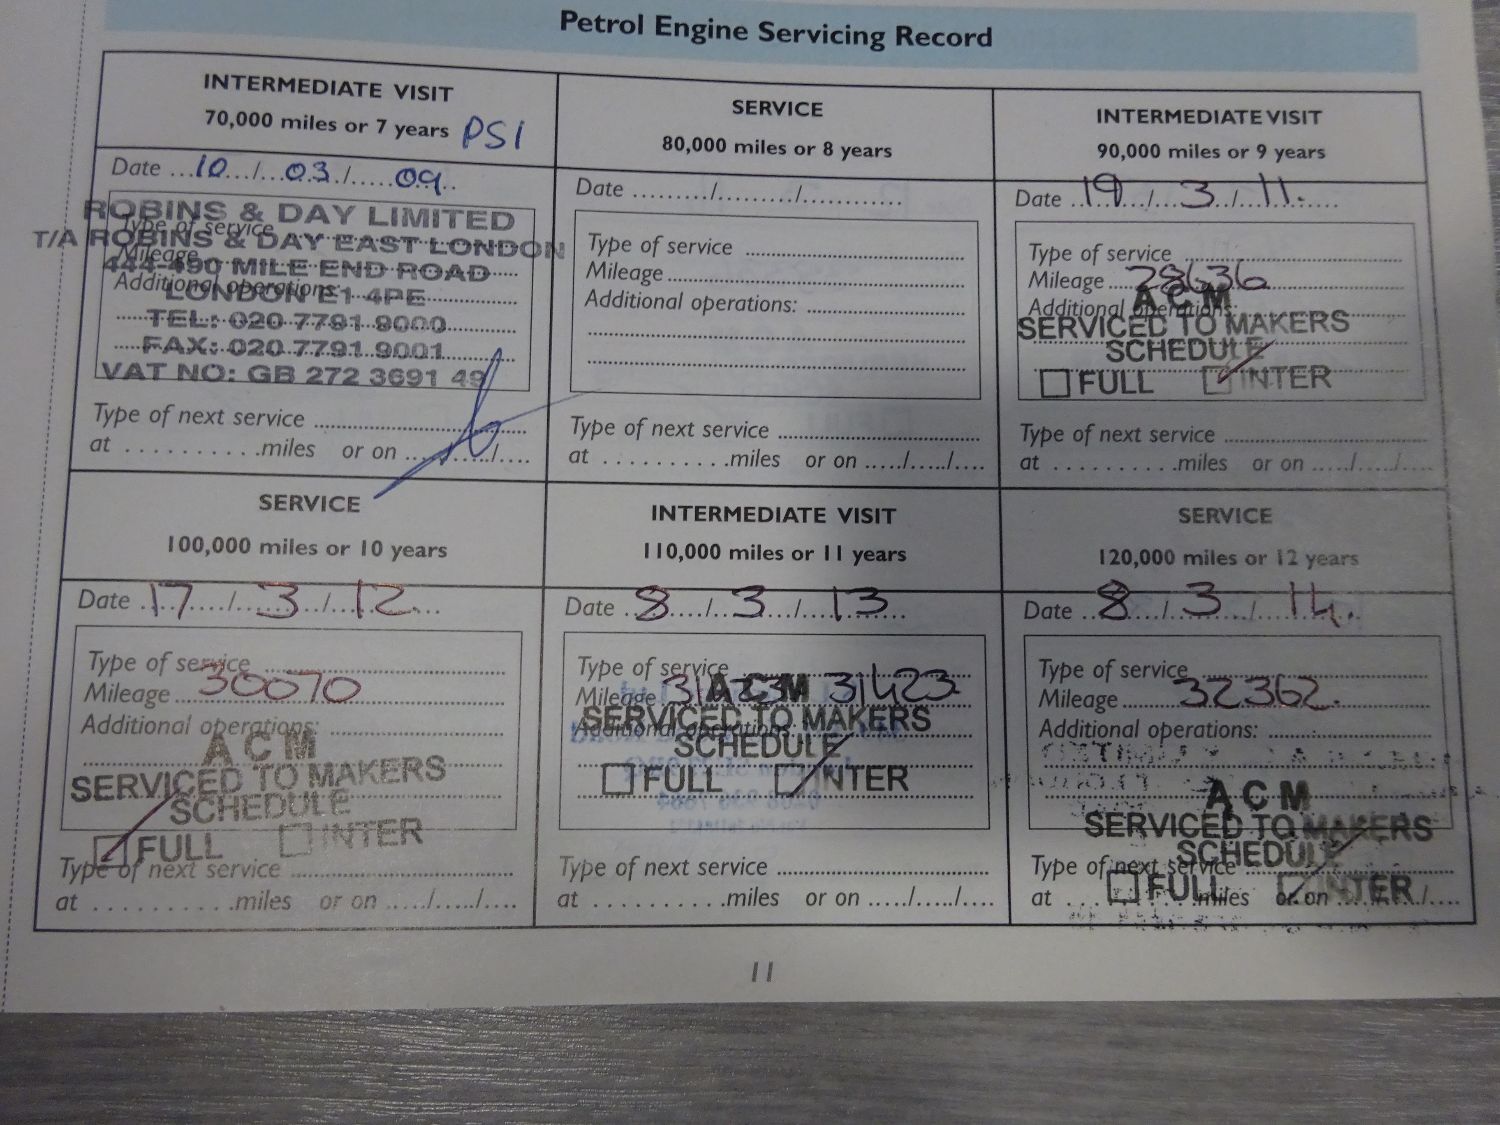 Petrol Engine Servicing Record
INTERMEDIATE VISIT
70,000 miles or 7 years PS1
Date ...10.../...03./.....09..
ROBINS & DAY LIMITED
Type of service
T/A ROBINS & DAY EAST LONDON
Mileage
444-490 MILE END ROAD
Additional operations:
LONDON E1 4PE
TEL: 020 7791 9000
FAX: 020 7791 9001
VAT NO: GB 272 3691 49
Type of next service
at ..........miles or on ...../...../....
SERVICE
80,000 miles or 8 years
Date ........./........../............
Type of service
Mileage
Additional operations:
Type of next service
at ..........miles or on ...../...../....
INTERMEDIATE VISIT
90,000 miles or 9 years
Date ..19.../...3.../...11....
Type of service
Mileage 28636
Additional operations:
A C M
SERVICED TO MAKERS
SCHEDULE
FULL INTER
Type of next service
at ..........miles or on ...../...../....
SERVICE
100,000 miles or 10 years
Date .17...../...3.../...12....
Type of service
Mileage 30070
Additional operations:
A C M
SERVICED TO MAKERS
SCHEDULE
FULL INTER
Type of next service
at ..........miles or on ...../...../....
INTERMEDIATE VISIT
110,000 miles or 11 years
Date ..8..../...3.../....13....
Type of service
Mileage 31423 31423
Additional operations:
A C M
SERVICED TO MAKERS
SCHEDULE
FULL INTER
Type of next service
at ..........miles or on ...../...../....
SERVICE
120,000 miles or 12 years
Date ..8..../...3.../....14....
Type of service
Mileage 32362.
Additional operations:
A C M
SERVICED TO MAKERS
SCHEDULE
Type of next service
FULL INTER
at ..........miles or on ...../...../....
11